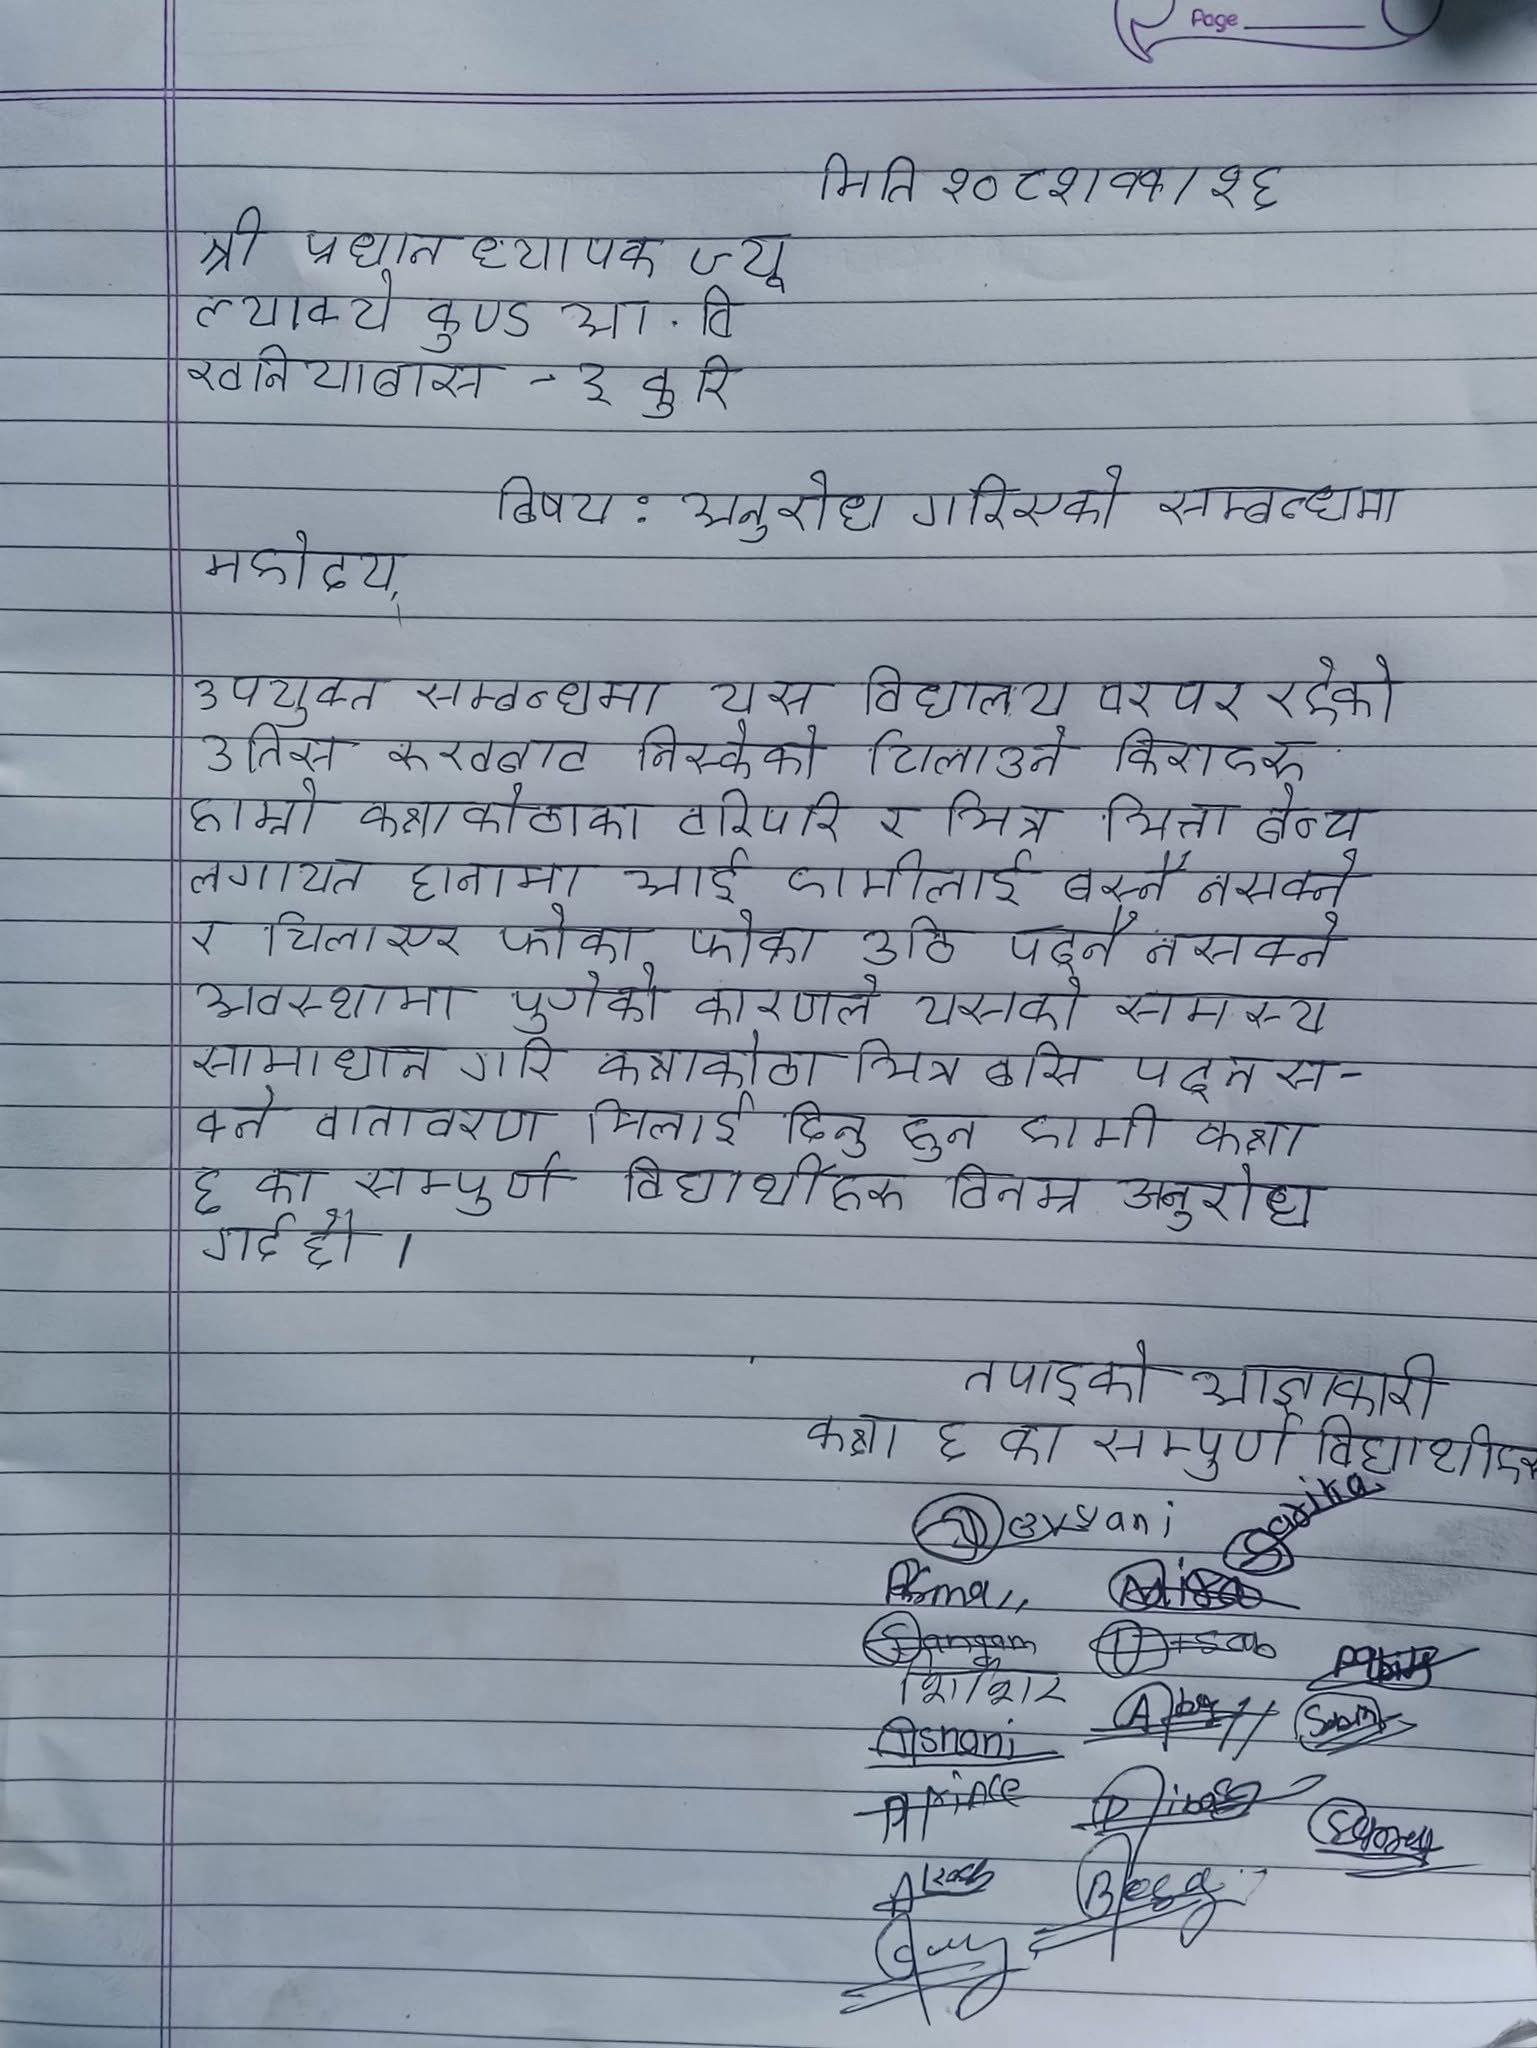 Page
मिति २०८२।११।२६
श्री प्रधानध्यापक ज्यू
ल्याक्ये कुण्ड आ. वि
खनियाबास - ३ कुरि
बिषय : अनुरोध गरिएको सम्बन्धमा
महोदय,
उपयुक्त सम्बन्धमा यस विद्यालय वरपर रहेको
उतिस रुखबाट निस्केको चिलाउने किराहरु
हाम्रो कक्षाकोठाका वरिपरि र भित्र भित्ता बेन्च
लगायत छानामा आई हामीलाई बस्नै नसक्ने
र चिलाएर फोका फोका उठि पढ्नै नसक्ने
अवस्थामा पुगेको कारणले यसको समस्य
सामाधान गरि कक्षाकोठा भित्र बसि पढ्न स-
क्ने वातावरण मिलाई दिनु हुन हामी कक्षा
६ का सम्पुर्ण विद्यार्थीहरु विनम्र अनुरोध
गर्दछौ ।
तपाइको आज्ञाकारी
कक्षा ६ का सम्पुर्ण विद्यार्थीहरु
Sarika
Asma
Sangam
शिशिर
Asnani
Prince
Akash